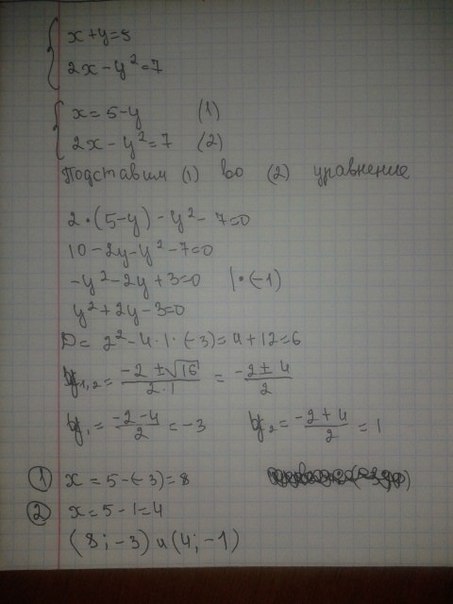 x+y=5
2x-y²=7
x=5-y (1)
2x-y²=7 (2)
Подставим (1) во (2) уравнение
2•(5-y)-y²-7=0
10-2y-y²-7=0
-y²-2y+3=0 |•(-1)
y²+2y-3=0
D=2²-4•1•(-3)=4+12=6
y₁,₂=(-2±√16)/(2•1)=(-2±4)/2
y₁=(-2-4)/2=-3 y₂=(-2+4)/2=1
① x=5-(-3)=8
② x=5-1=4
(8;-3) и (4;-1)